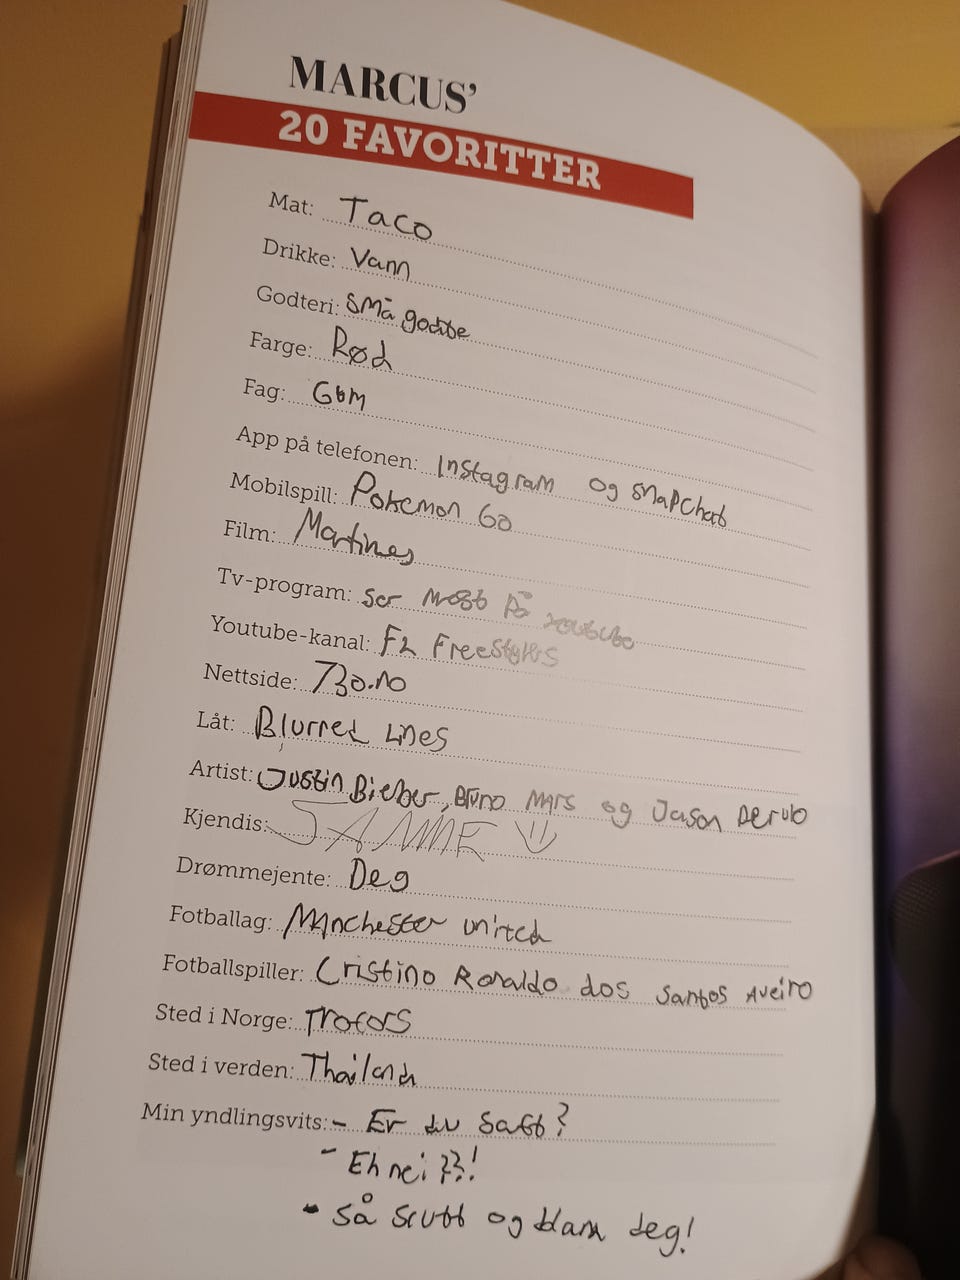 MARCUS'
20 FAVORITTER
Mat: Taco
Drikke: Vann
Godteri: Små godtbe
Farge: Rød
Fag: Gym
App på telefonen: Instagram og snapchat
Mobilspill: Pokemon Go
Film: Martinez
Tv-program: Ser mest på youtube
Youtube-kanal: F2 Freestylers
Nettside: 730.no
Låt: Blurred Lines
Artist: Justin Bieber, Bruno Mars og Jason Derulo
Kjendis:
Drømmejente: Deg
Fotballag: Manchester united
Fotballspiller: Cristino Ronaldo dos Santos Aveiro
Sted i Norge: Trofors
Sted i verden: Thailand
Min yndlingsvits: - Er du Satt?
- Eh nei ??!
- Så scutt og klam deg!